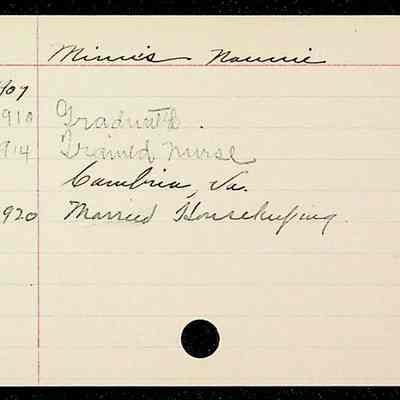 Minnis Nannie
1907
1910 Graduated.
1914 Trained Nurse
Cambria, Va.
1920 Married Housekeeping.